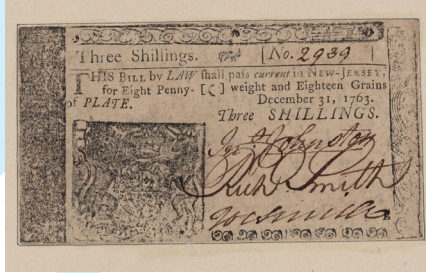 Three Shillings. No. 2939
THIS BILL by LAW shall pass current in NEW-JERSEY,
for Eight Penny- [ ] weight and Eighteen Grains
of PLATE. December 31, 1763.
Three SHILLINGS.
Jno. Johnston
Rich Smith